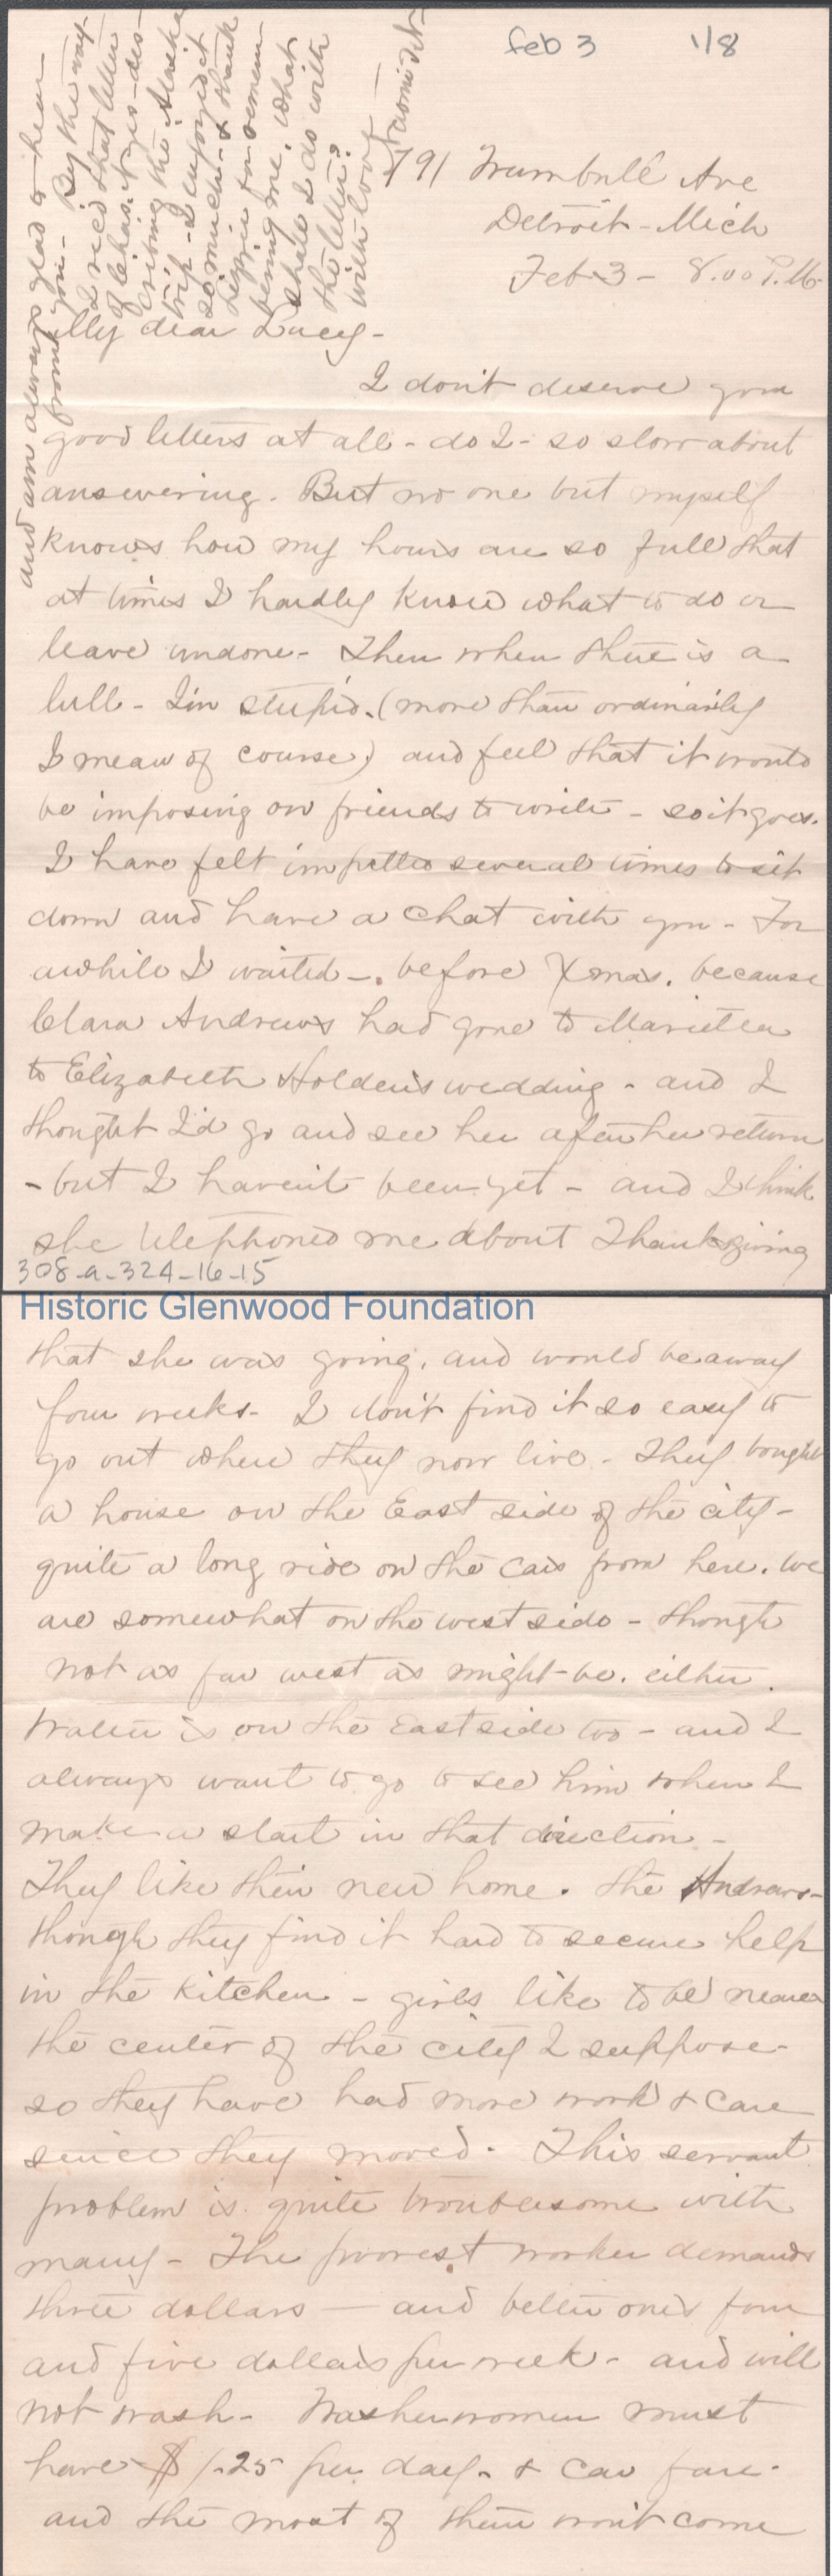 feb 3 1/8
791 Trumbull Ave
Detroit - Mich
Feb 3 - 8.00 P.M.
My dear Lucy -
I don't deserve your
good letters at all - do I - so slow about
answering. But no one but myself
knows how my hours are so full that
at times I hardly know what to do or
leave undone - Then when there is a
lull - I'm stupid. (more than ordinarily
I mean of course) and feel that it would
be imposing on friends to write - so it goes.
I have felt impelled several times to sit
down and have a chat with you - For
awhile I waited - before Xmas, because
Clara Andrews had gone to Marietta
to Elizabeth Holden's wedding - and I
thought I'd go and see her after her return
- but I haven't been yet - and I think
she telephoned me about Thanksgiving
308-a-324-16-15
Historic Glenwood Foundation
that she was going, and would be away
four weeks - I don't find it so easy to
go out where they now live - They bought
a house on the East side of the city -
quite a long ride on the cars from here. We
are somewhat on the west side - though
not as far west as might be, either.
Walter is on the East side too - and I
always want to go to see him when I
make a start in that direction -
They like their new home. the Andrews -
though they find it hard to secure help
in the kitchen - girls like to be nearer
the center of the city I suppose -
so they have had more work & care
since they moved. This servant
problem is quite troublesome with
many - The poorest worker demands
three dollars - and better ones four
and five dollars per week - and will
not wash - Washerwomen must
have $1.25 per day. & car fare.
and the most of them won't come
and am always glad to hear
from you - By the way
I rec'd that letter
of Chas. des-
cribing the Alaska
trip - I enjoyed it
so much - & thank
Lizzie for remem-
bering me. What
shall I do with
the letter?
with love -